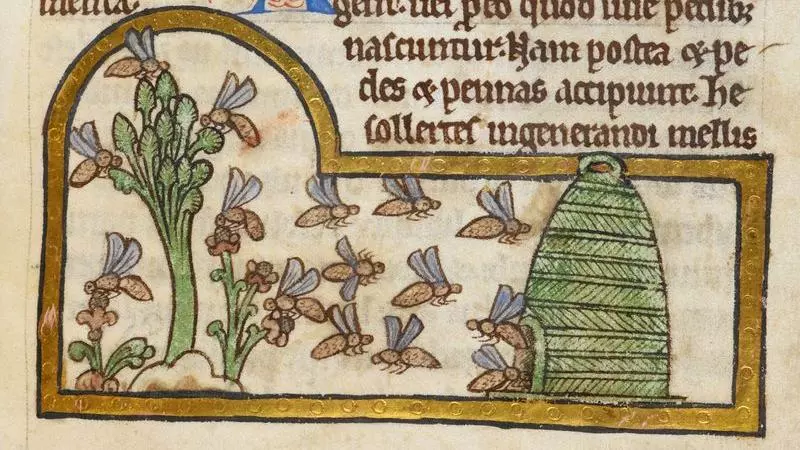 gent. uel ꝓ eo quod sine pedib;
nascuntur. Nam postea & pe
des & pennas accipiunt. he
sollertes ingenerandi mellis